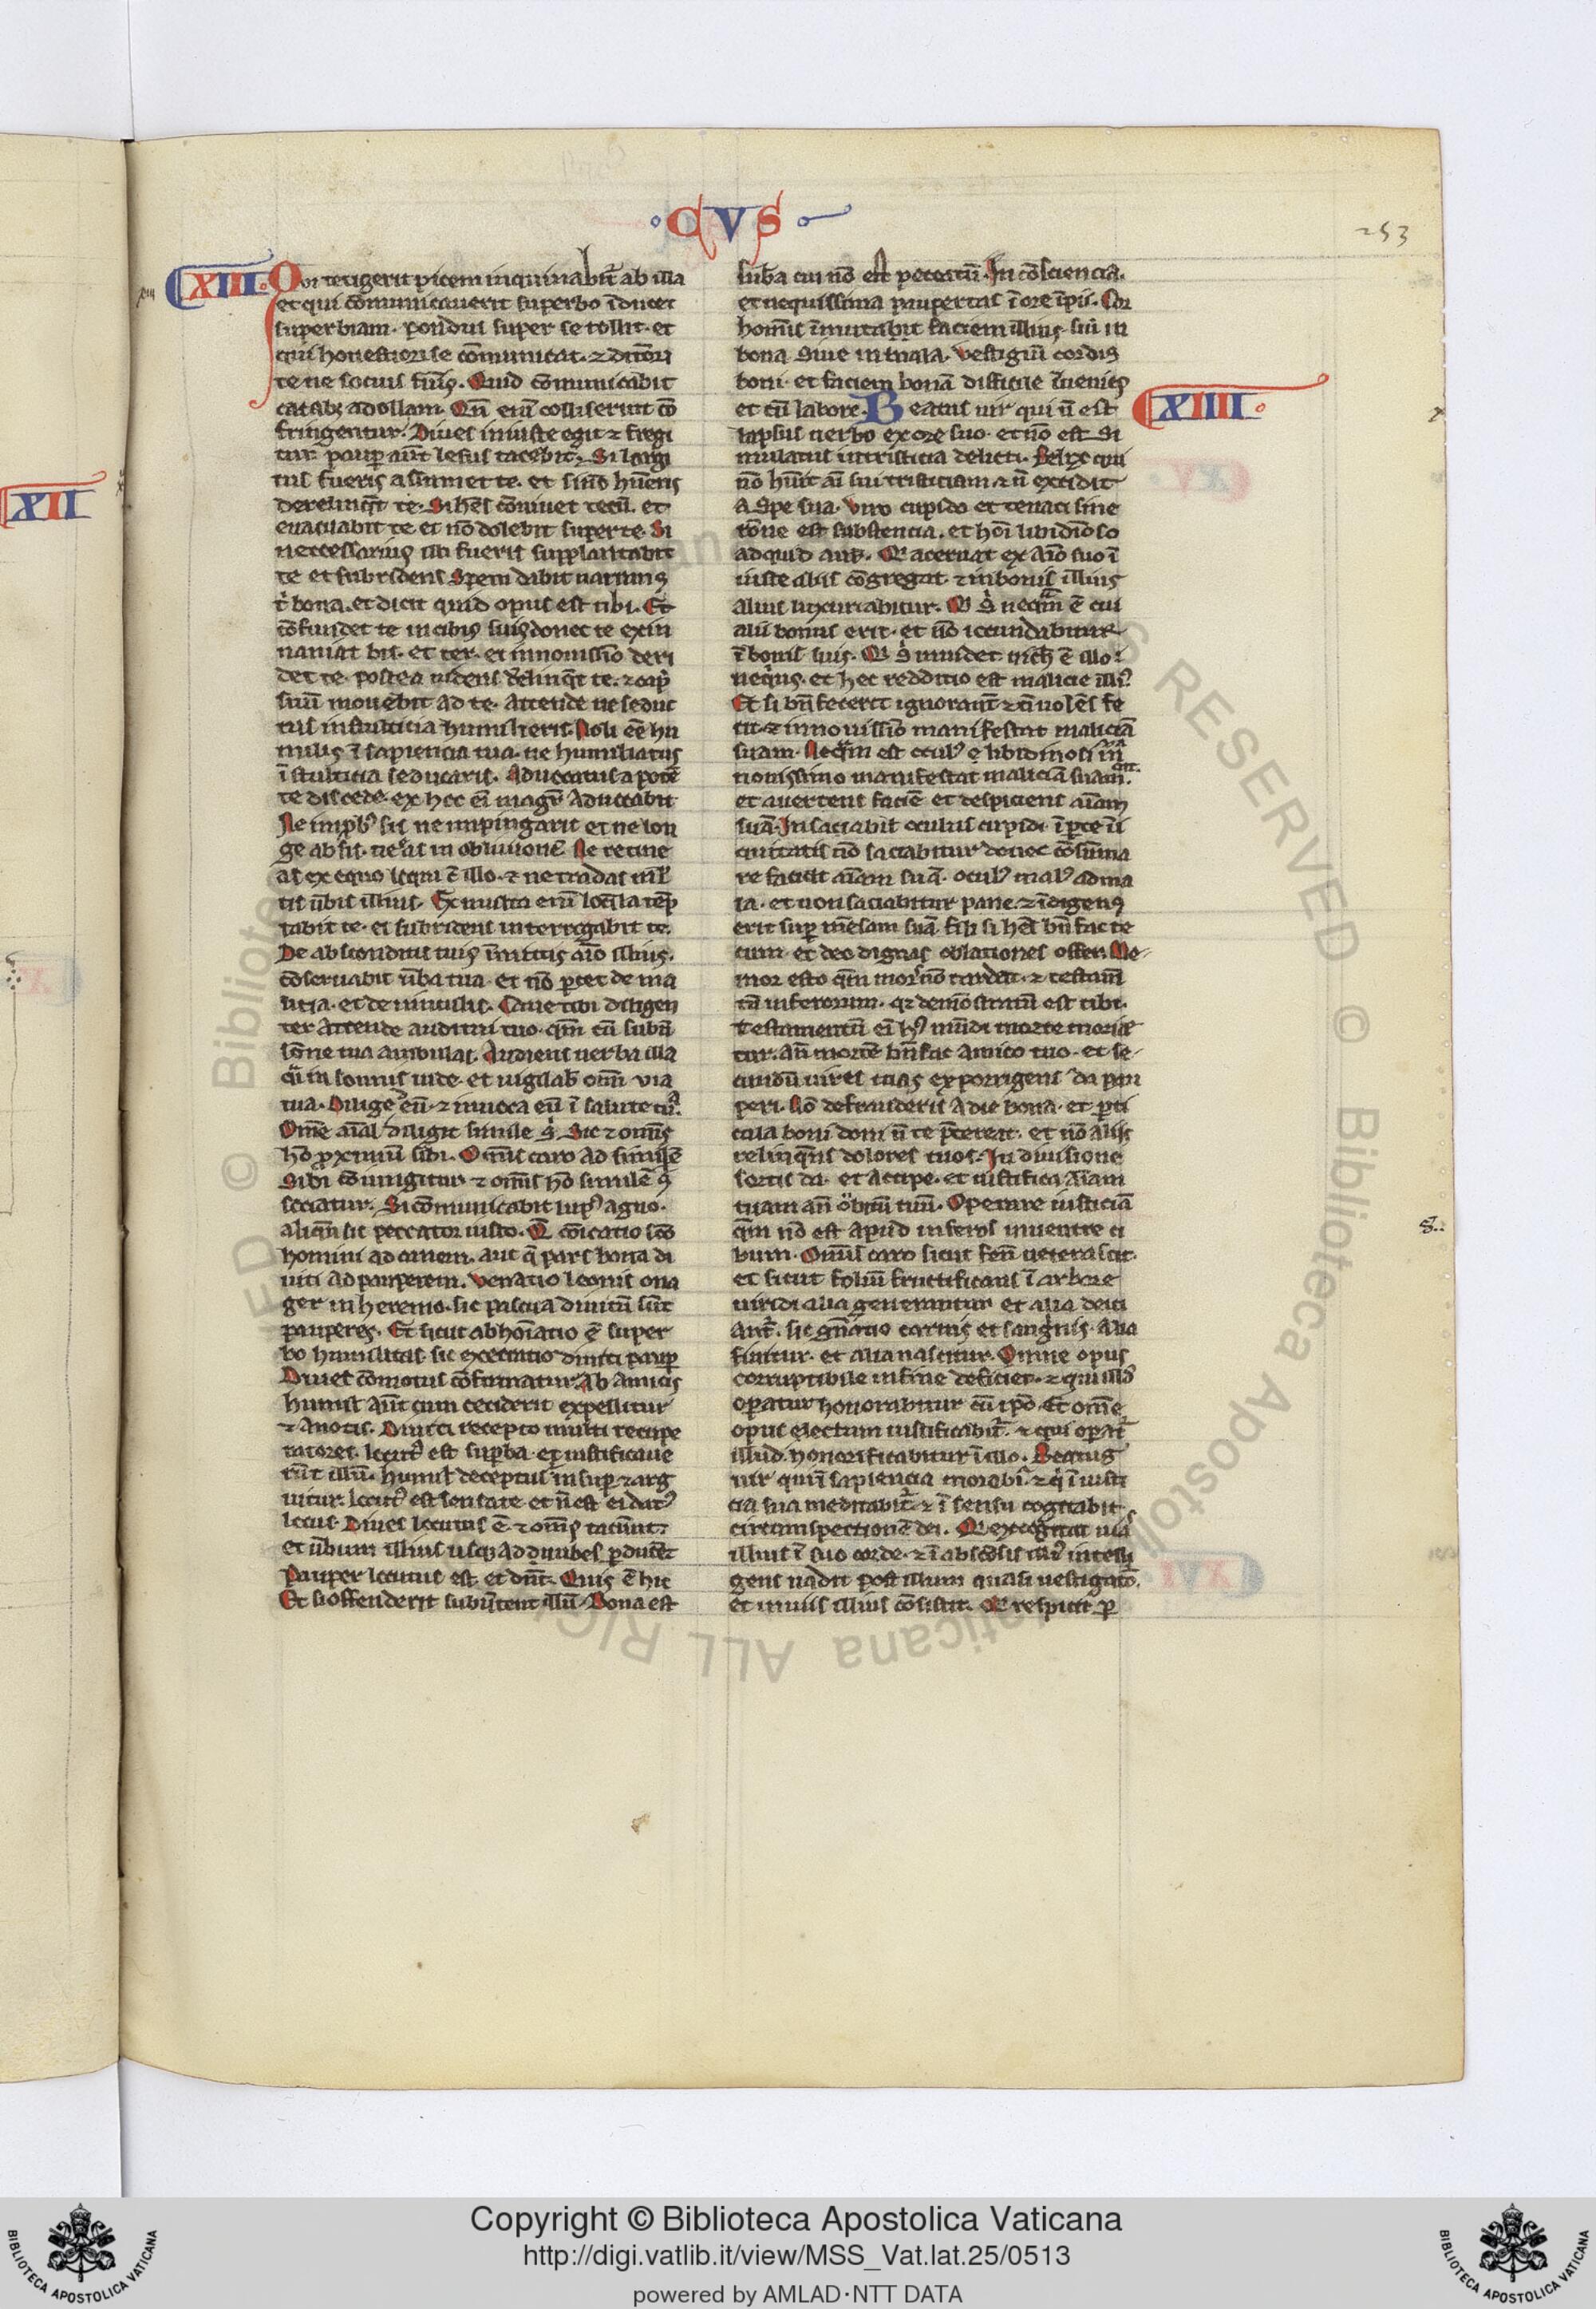 · CVS ·
253
XIII. Qui tetigerit picem inquinabit̄ ab illa
et qui cōmunicauerit superbo īduet
superbiam. pondus super se tollit. et
qui honestiori se cōmunicat. ⁊ ditiori
te ne socius fu̅is. Quid cōmunicabit
catab; ad ollam. Qn̄ eni̅ colliserint cō
fringentur. Diues iniuste egit ⁊ fregi
tur paup̄ aut̄ lesus tacebit. Si largi
tus fueris assumet te. et si nō hu̅eris
derelinq̄t te. Si hēs cōuiuet tecū. et
euacuabit te et nō dolebit super te. Si
neccessarius illi fueris supplantabit
te et subridens spem dabit narrans
t̄ bona. et dicit quid opus est tibi. Et
cōfundet te in cibis suis donec te exin
naniat bis. et ter. et in nouissīo deri
det te. postea uidens d̄elinq̄t te. ⁊ cap̄
suū mouebit ad te. Attende ne seduc
tus in stulticia humilieris. Noli eē hu
milis ī sapiencia tua. ne humiliatus
ī stulticia seducaris. Aduocatus a potē
te discede. ex hec ei̅ mag̅ aduocabit
Ne imp̄b̉ sis ne impingaris et ne lon
ge ab sis. ne eas in obliuionē. Ne retine
as ex equo loqui c̄ illo. ⁊ ne credas ml̄
tis ūbis illius. Ex multa eni̅ loq̄la tēp
tabit te. et subridens interrogabit te.
De absconditis tuis īmitis aīo illius.
cōseruabit ūba tua. et nō p̄cet de ma
licia. et de uinculis. Caue tibi diligen
ter attende auditui tuo. qm̄ cū subu̅
sione tua ambulas. Audiens uerba illa
q̄i in sompnis uide. et uigilab̄ om̄i via
tua. Dilige eū. ⁊ inuoca eū ī salute tua.
Om̄e aīal diligit simile s̄. Sic ⁊ om̄is
hō p̄ximū sibi. Om̄is caro ad similē
sibi cōiungitur ⁊ om̄is hō simile s̄
sociatur. Si cōmunicabit lup̉ agno.
aliqn̄ sic peccator iusto. Q̄ cōicatio sc̄o
homini ad canem. aut q̄ pars bona di
uiti ad pauperem. Venatio leonis ona
ger in heremo. sic pascua diuitū sūt
pauperes. Et sicut abhoīatio ē super
bo humilitas. sic execratio diuiti paup̄
Diues cōmotus cōfirmatur ab amicis
humilis aut̄ cum ceciderit expellitur
⁊ a notis. Diuiti recepto multi recupe
ratores. locut̉ est supba. et iustificaue
rūt illū. humil̄ deceptus insup̄ ⁊ arg
uitur. locut̉ est sensate et n̄ est ei dat̉
locus. Diues locutus ē. ⁊ om̄s tacūut.
et ūbum illius usq; ad nubes p̄ducēt
Pauper locutus est et dn̄t. Quis ē hic
Et si offenderit subūtent illū. Bona est
sub̄a cui nō est peccatū. In cōsciencia.
et nequissima paupertas ī ore īpii. Cor
homīs īmutabit faciem illius. siū in
bona. siue in mala. Vestigiū cordis
boni. et faciem bonā difficile īuenies
et cū labore. Beatus uir qui n̄ est
lapsus uerbo ex ore suo. et nō est sti
mulatus in tristicia delicti. Felix qui
nō hūit aī sui tristiciam. ⁊ n̄ excidit
a spe sua. Viro cupido et tenaci sine
rōne est substencia. et hoī liuidīo so
ad quid aur̄. Qui aceruat ex aīo suo ī
iuste aliis cōgregat. ⁊ in bonis illius
alius luxuriabitur. Qui s̄ neq̄m ē cui
alii bonus erit. et nō iocundabitur
ī bonis suis. Qui s̄ inuidet nich̄ ē illo
neq̄us. et hec redditio est malicie illỉ
Et si bn̄ fecerit ignorant̄ ⁊ n̄ uolēs fe
cit. ⁊ in nouissīo manifestat maliciā
suam. Neq̄m est ocul̉ liuidi
nouissimo manifestat maliciā suam.
et auertens faciē et despiciens aīam
suā. Insaciabilis oculus cupidi ī p̄te in
iquitatis nō saciabitur donec cōsūma
re faciat aīam suā. ocul̉ mal̉ ad ma
la. et non saciabitur pane. ⁊ īdigens
erit sup̄ mēsam suā. fili si hēs bn̄ fac te
cum. et deo dignas oblationes offer. Me-
mor esto qm̄ mors nō tardat. ⁊ testam̄
tū inferorum. qr̄ demōstratū est tibi.
Testamentū ei̅ h̉ mūdi morte morie
tur. an̄ mortē bn̄fac amico tuo. et se-
cundū uires tuas exporrigens da pau
peri. Nō defrauderis a die bona. et p̄ti
cula boni doni n̄ te p̄tereat. et nō aliis
relinq̄ns dolores tuos. In diuisione
sortis da. et accipe. et iustifica aīam
tuam an̄ obitū tuū. Operare iusticiā
qm̄ nō est apud inferos inuenire ci
bum. Om̄is caro sicut fenū ueterascit.
et sicut foliū fructificans ī arbore
uiridi alia generantur et alia deici
ant̄. sic gn̄atio carnis et sang̅nis. alia
finitur. et alia nascitur. Omne opus
corruptibile in fine deficiet. ⁊ qui illd̉
operatur honorabitur cū ip̄o. Et om̄e
opus electum iustificabit̄. ⁊ qui operat̄
illud. honorificabitur ī illo. Beatus
uir qui ī sapiencia morabit̄. ⁊ q̄ ī iusti
cia sua meditabit̄. ⁊ ī sensu cogitabit
circumspectionē dei. Qui excogitat uias
illius ī suo corde. ⁊ ī absc̄osis suis intelli
gens uadit post illum quasi uestigatō.
et in uiis illius cōsistit. Qui respicit p̄
XIIII.
XII
Copyright © Biblioteca Apostolica Vaticana
http://digi.vatlib.it/view/MSS_Vat.lat.25/0513
powered by AMLAD·NTT DATA
BIBLIOTECA APOSTOLICA VATICANA
BIBLIOTECA APOSTOLICA VATICANA